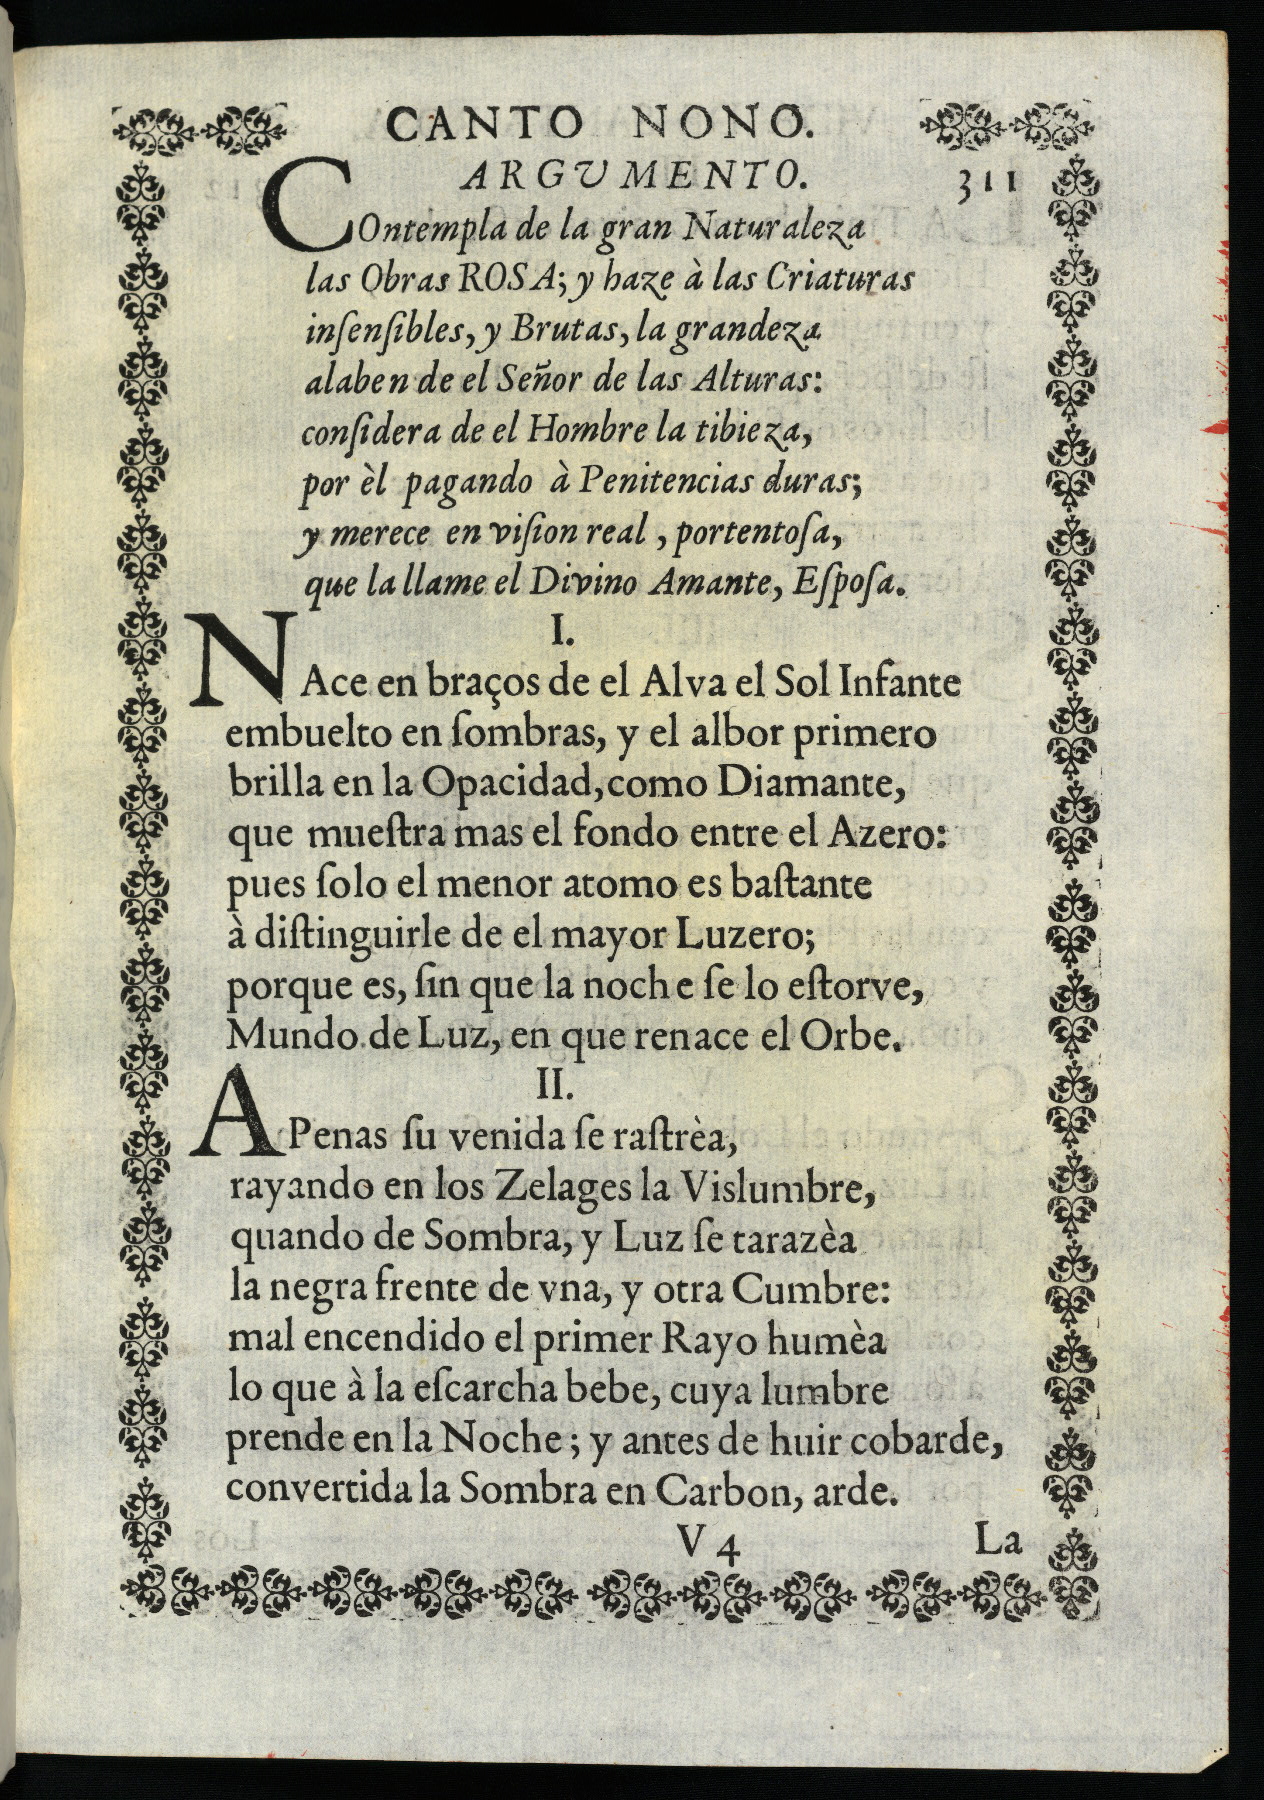 CANTO NONO.
ARGVMENTO.
311
COntempla de la gran Naturaleza
las Obras ROSA; y haze à las Criaturas
inſenſibles, y Brutas, la grandeza
alaben de el Señor de las Alturas:
conſidera de el Hombre la tibieza,
por èl pagando à Penitencias duras;
y merece en viſion real, portentoſa,
que la llame el Divino Amante, Eſpoſa.
I.
NAce en braços de el Alva el Sol Infante
embuelto en ſombras, y el albor primero
brilla en la Opacidad, como Diamante,
que mueſtra mas el fondo entre el Azero:
pues ſolo el menor atomo es baſtante
à diſtinguirle de el mayor Luzero;
porque es, ſin que la noche ſe lo eſtorve,
Mundo de Luz, en que renace el Orbe.
II.
APenas ſu venida ſe raſtrèa,
rayando en los Zelages la Vislumbre,
quando de Sombra, y Luz ſe tarazèa
la negra frente de vna, y otra Cumbre:
mal encendido el primer Rayo humèa
lo que à la eſcarcha bebe, cuya lumbre
prende en la Noche; y antes de huir cobarde,
convertida la Sombra en Carbon, arde.
V 4
La